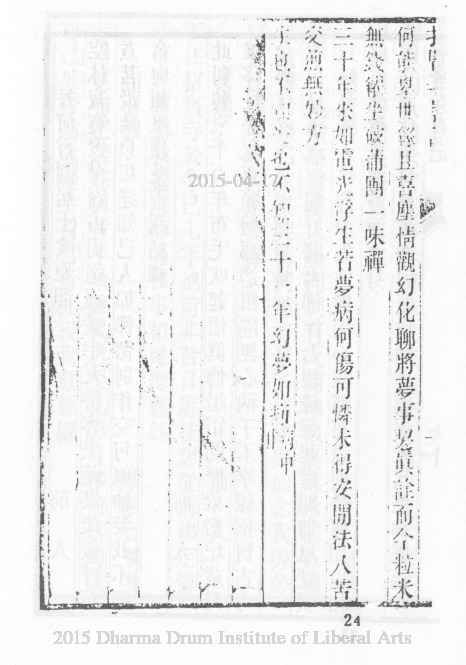 何能世緣且喜塵情觀幻化聊將夢事契眞詮而今粒米
無錢糴坐破蒲團一味禪
三十年來如電光浮生若夢病何傷可憐未得安閒法八苦
交煎無妙方
也不也不知三十年幻夢如
2015-04-17
24
2015 Dharma Drum Institute of Liberal Arts